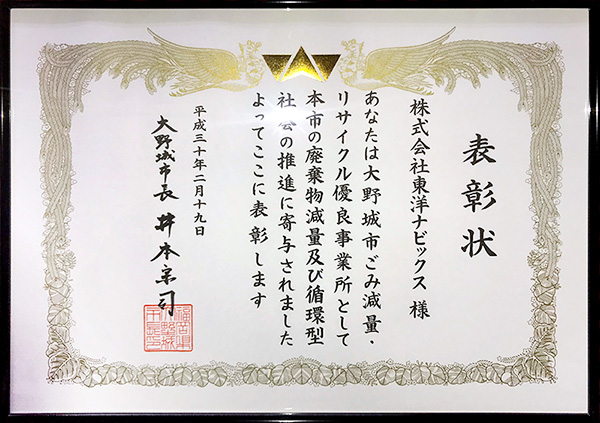 表彰状
株式会社東洋ナビックス 様
あなたは大野城市ごみ減量・
リサイクル優良事業所として
本市の廃棄物減量及び循環型
社会の推進に寄与されました
よってここに表彰します
平成三十年二月十九日
大野城市長 井本宗司
福岡県
大野城
市長印